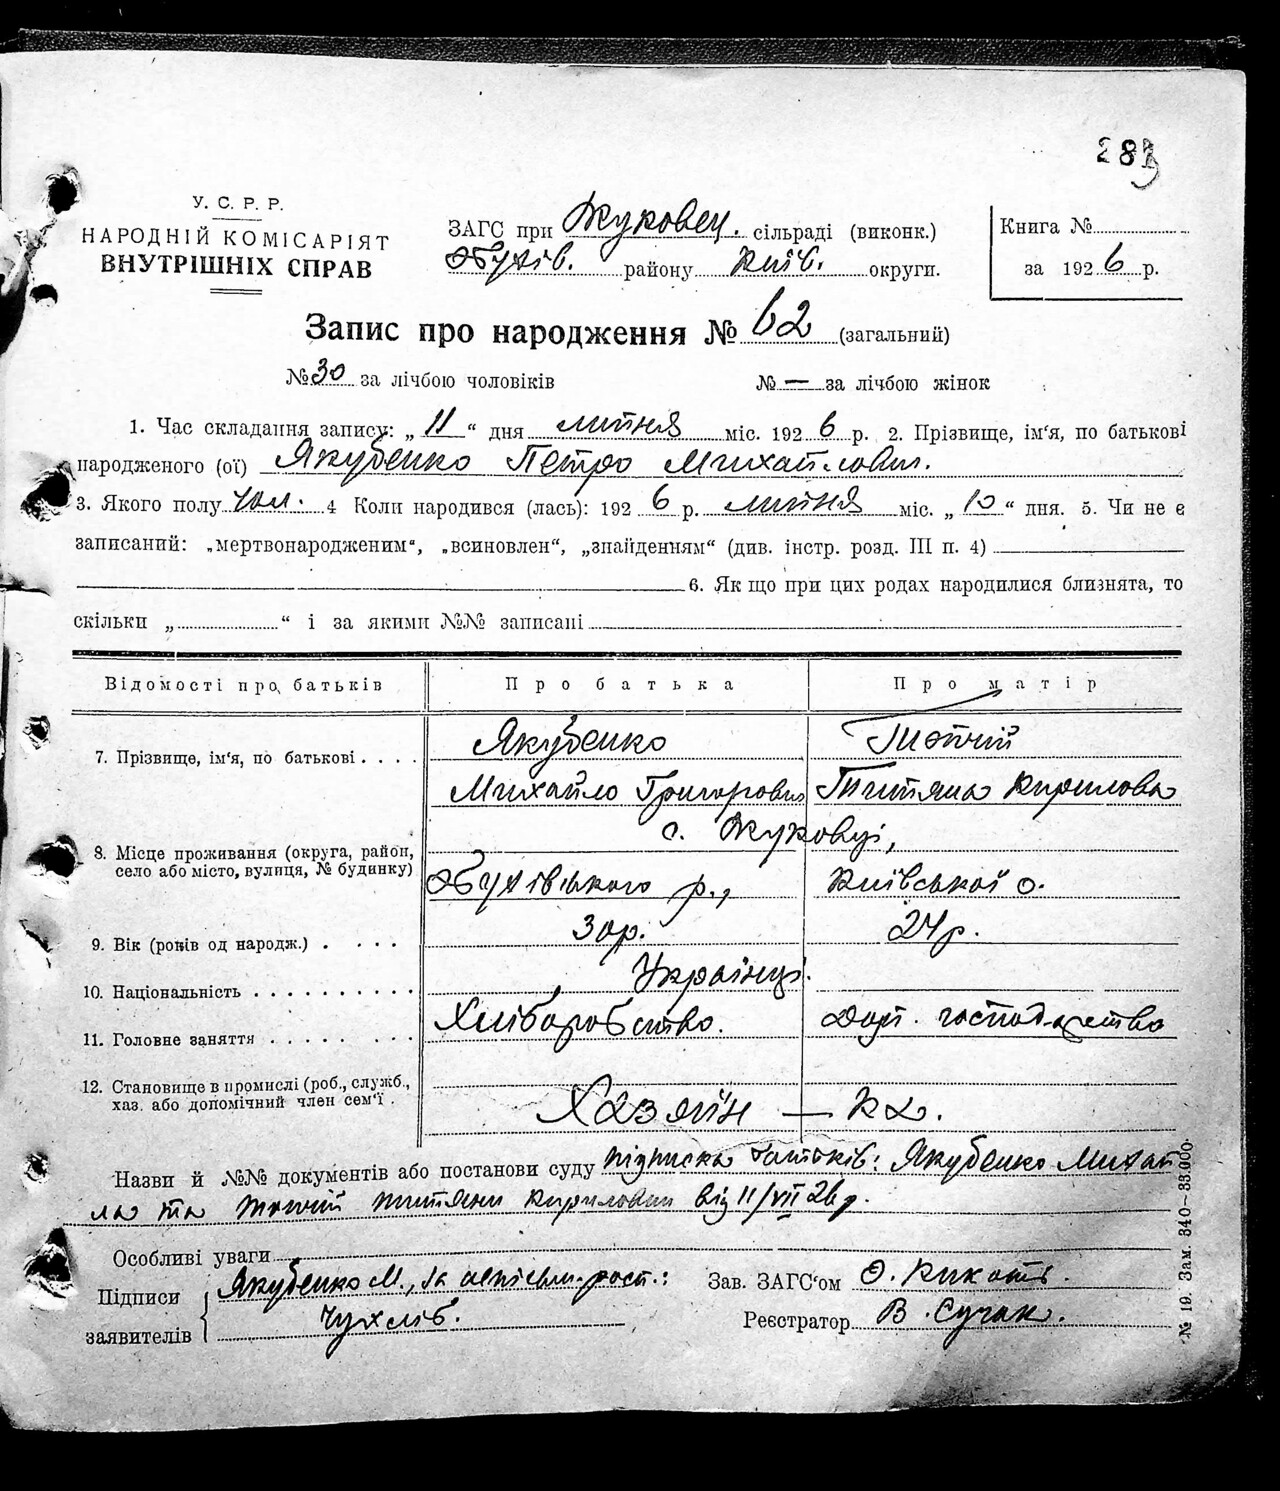 283
У. С. Р. Р.
НАРОДНІЙ КОМІСАРІЯТ
ВНУТРІШНІХ СПРАВ
ЗАГС при Жуковец. сільраді (виконк.)
Обухів. району Київ. округи.
Книга №
за 1926 р.
Запис про народження № 62 (загальний)
№ 30 за лічбою чоловіків № — за лічбою жінок
1. Час складання запису: „11“ дня липня міс. 1926 р. 2. Прізвище, ім'я, по батькові
народженого (ої) Якубенко Петро Михайлович.
3. Якого полу чол. 4 Коли народився (лась): 1926 р. липня міс. „10“ дня. 5. Чи не є
записаний: „мертвонародженим“, „всиновлен“, „знайденням“ (див. інстр. розд. III п. 4)
6. Як що при цих родах народилися близнята, то
скільки „ “ і за якими №№ записані
Відомості про батьків Про батька Про матір
7. Прізвище, ім'я, по батькові . . . . Якубенко
Михайло Григорович Титяна Кирилова
с. Жуковці,
8. Місце проживання (округа, район,
село або місто, вулиця, № будинку) Обухівського р., Київської о.
9. Вік (років од народж.) . . . . 30р. 24р.
10. Національність . . . . . . . . . . Українці.
11. Головне заняття . . . . . . . . Хліборобство. дом. господарство
12. Становище в промислі (роб., служб.,
хаз. або допомічний член сем'ї . Хазяїн — ка.
Назви й №№ документів або постанови суду підписка батьків: Якубенко Михай
ла та Титяни Кирилови від 11/VII 26р.
Особливі уваги
Підписи
заявителів
Якубенко М., за
Зав. ЗАГС'ом О.
Реєстратор В. Сучак.
№ 19. Зам. 340—33.000.